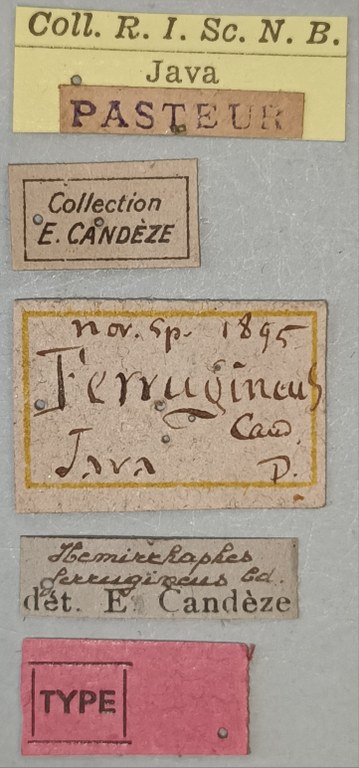 Coll. R. I. Sc. N. B.
Java
PASTEUR
Collection
E. CANDÈZE
nov. sp. 1895
Ferrugineus
Cand.
Java D.
Hemirrhaphes
ferrugineus Cd.
dét. E. Candèze
TYPE